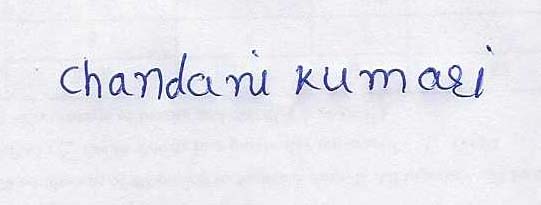 Chandani Kumari